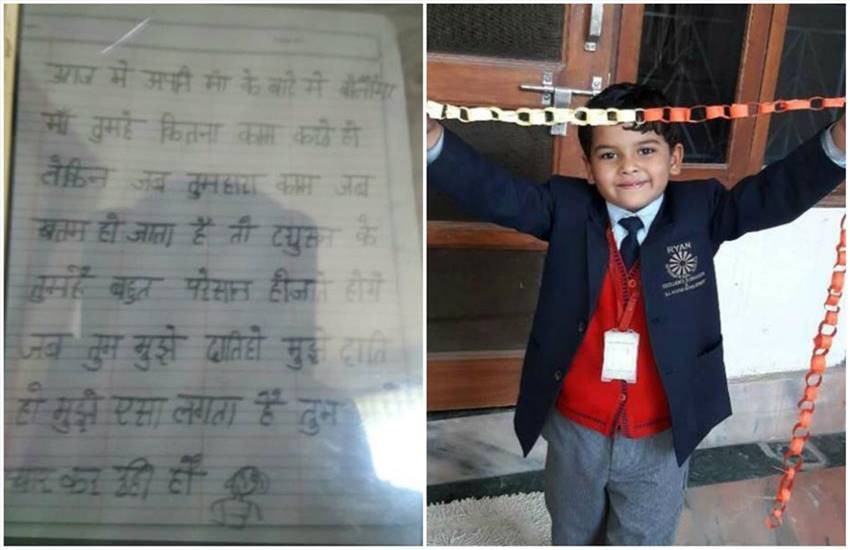 आज मे अपनी माँ के बारे मे
माँ तुमहे कितना काम करते हो
लेकिन जब तुमहारा काम जब
खतम हो जाता है तो टयुसन के
तुमहे बहुत परेसान होजाते होगे
जब तुम मुझे दातिहो मुझे दाति
हो मुझे एसा लगता है तुम
कर रही हो
RYAN